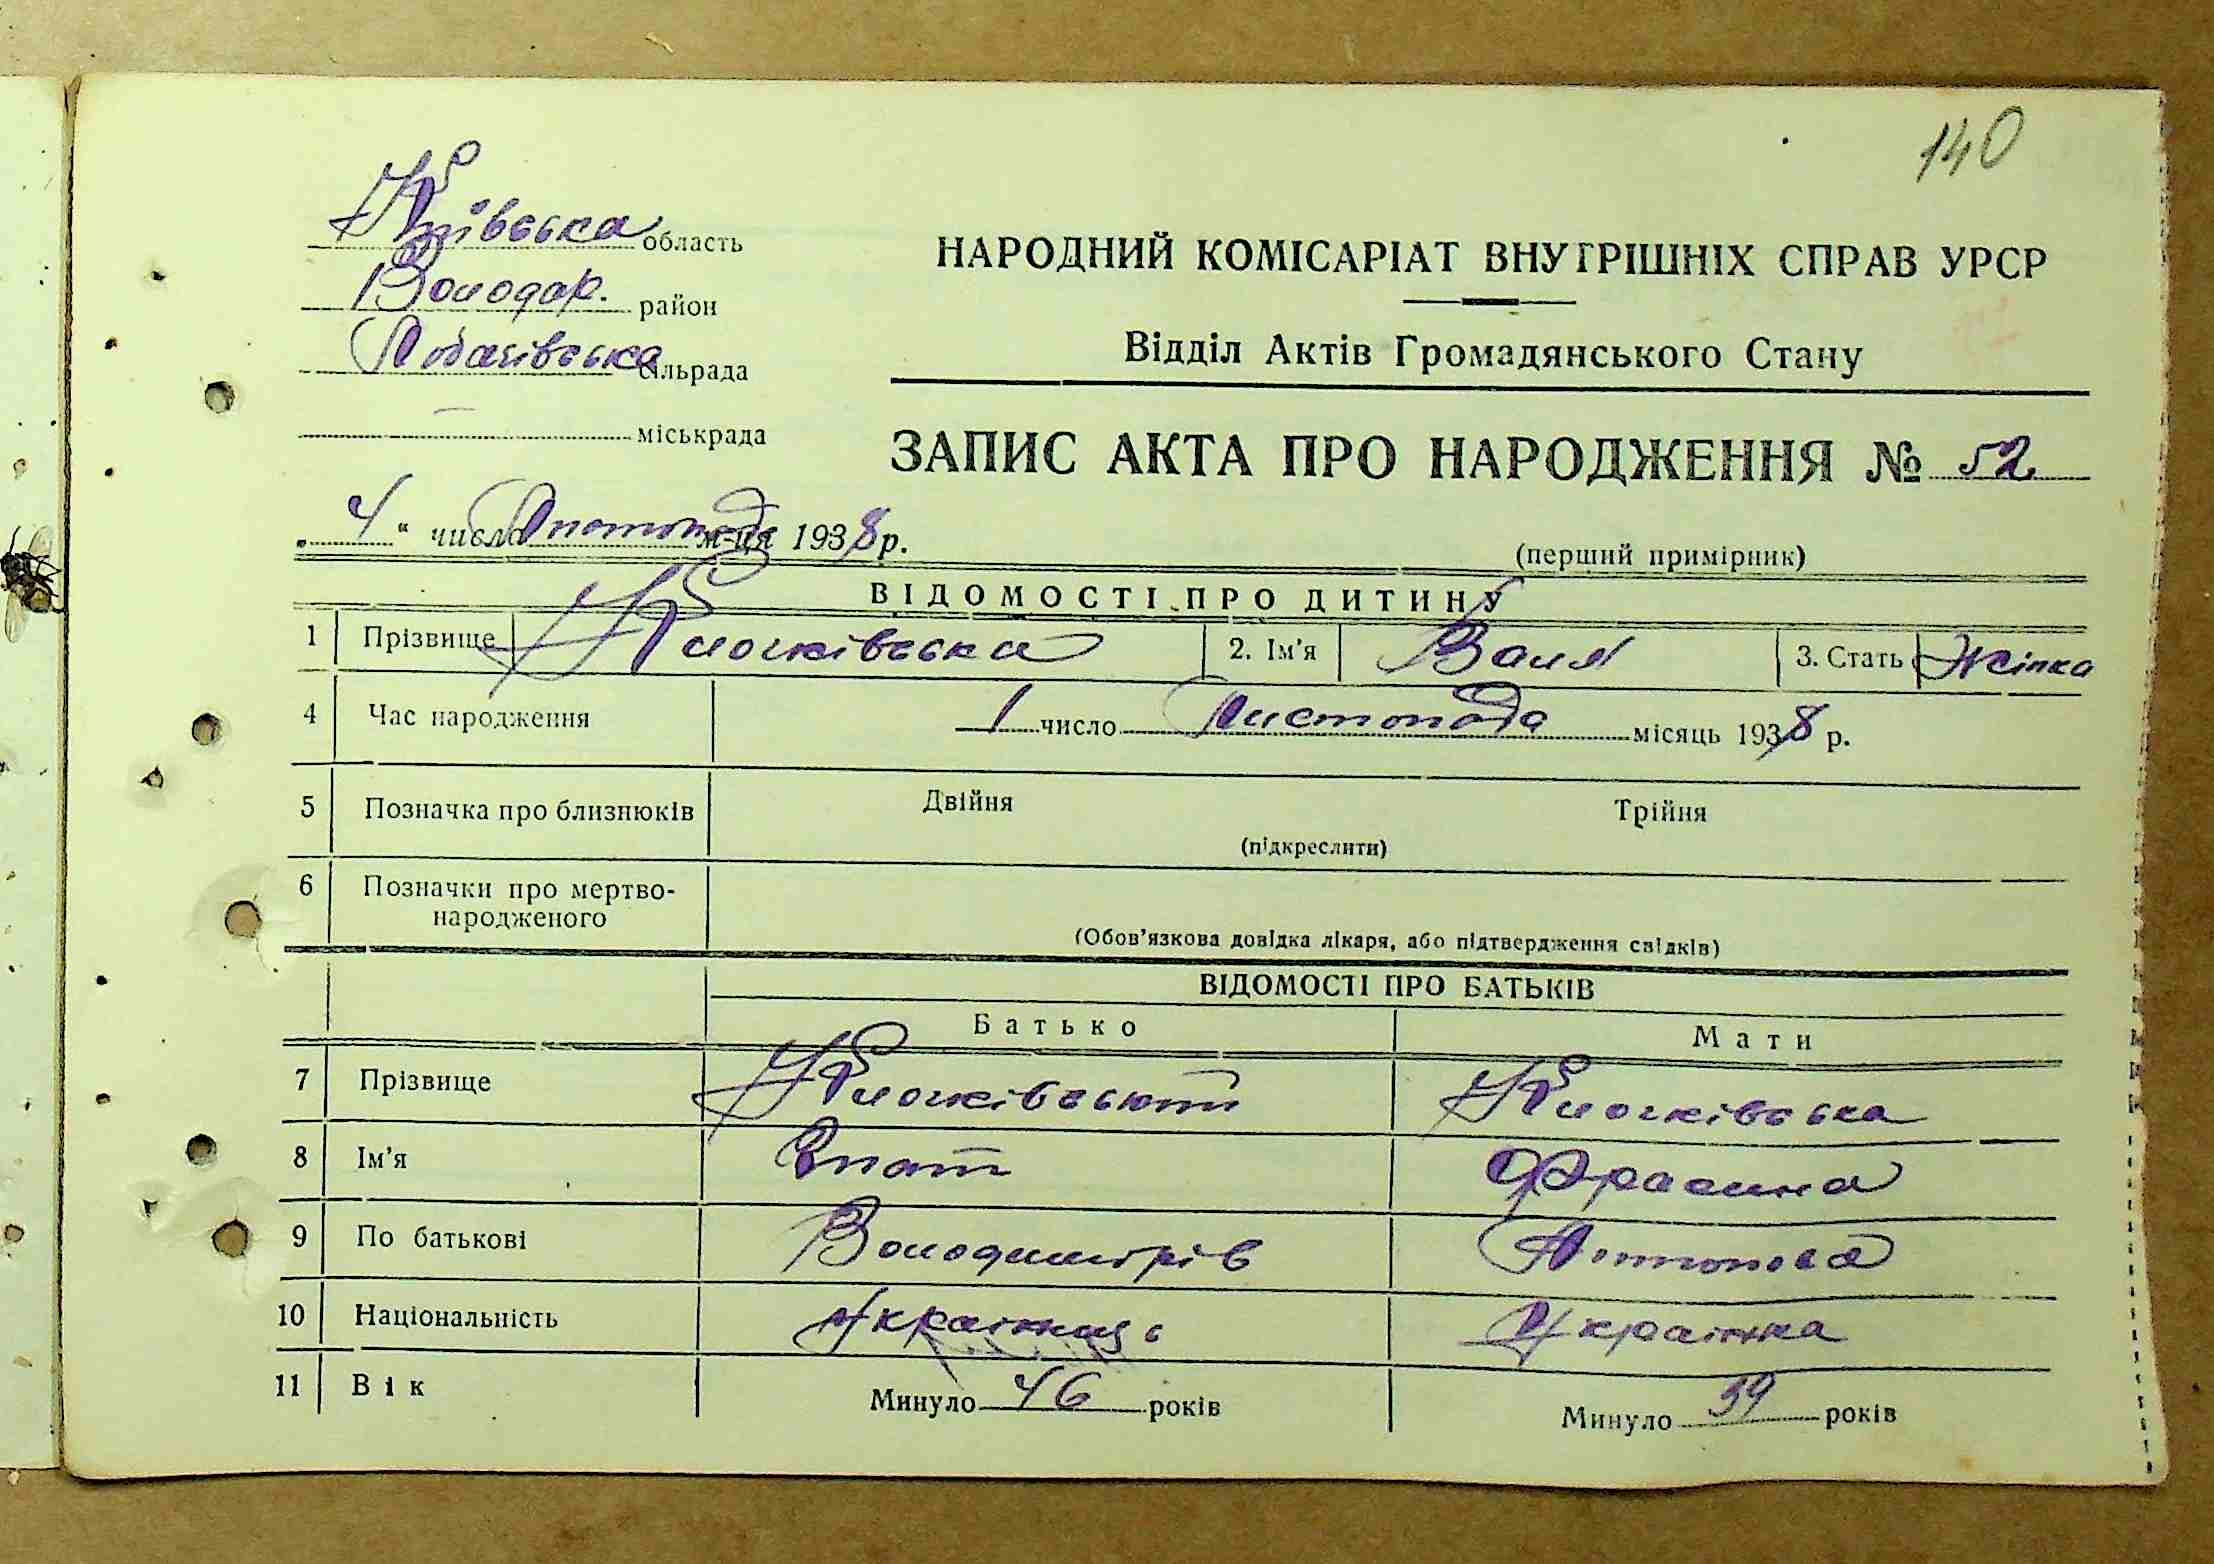 140
Київська область
Володар. район
Лобачівська сільрада
міськрада
НАРОДНИЙ КОМІСАРІАТ ВНУТРІШНІХ СПРАВ УРСР
Відділ Актів Громадянського Стану
ЗАПИС АКТА ПРО НАРОДЖЕННЯ № 52
„ 4 “ числа Листопада м-ця 1938 р.
(перший примірник)
ВІДОМОСТІ ПРО ДИТИНУ
1 Прізвище Клочківська 2. Ім’я Валя 3. Стать Жінка
4 Час народження 1 число Листопада місяць 1938 р.
5 Позначка про близнюків Двійня Трійня
(підкреслити)
6 Позначки про мертво-
народженого
(Обов’язкова довідка лікаря, або підтвердження свідків)
ВІДОМОСТІ ПРО БАТЬКІВ
Батько Мати
7 Прізвище Клочківський Клочківська
8 Ім’я Гнат Фрасина
9 По батькові Володимирів Антонова
10 Національність Українець Українка
11 Вік Минуло 46 років Минуло 39 років